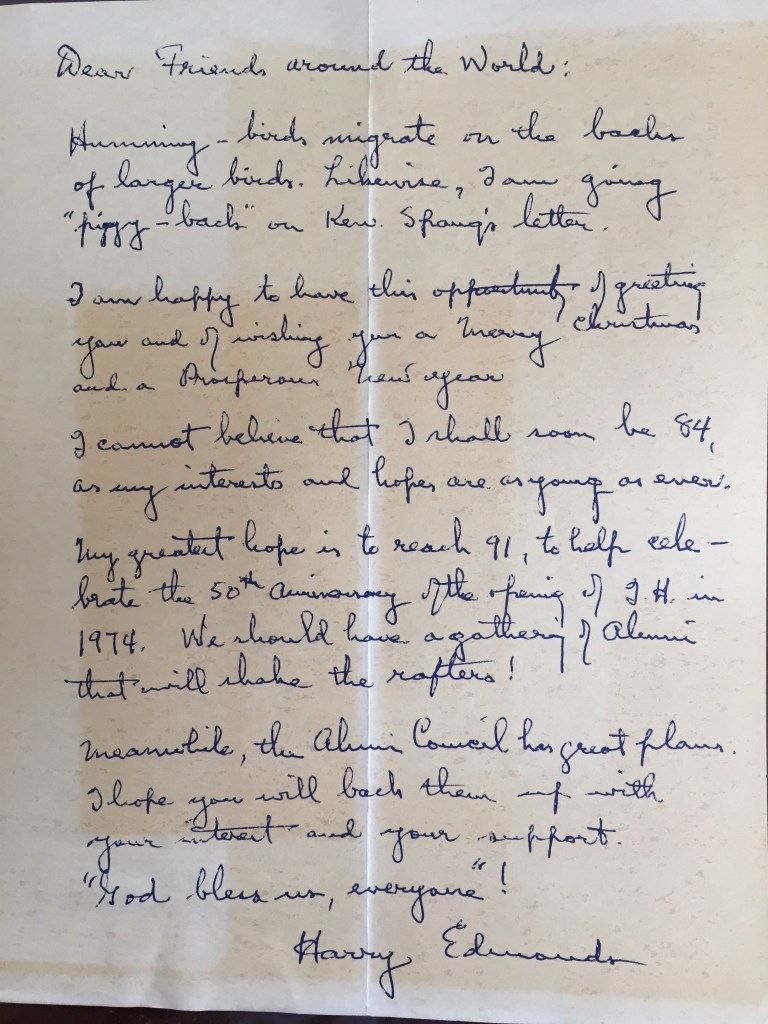 Dear Friends around the World:
Humming-birds migrate on the backs
of larger birds. Likewise, I am going
"piggy-back" on Ken. Spang's letter.
I am happy to have this opportunity of greeting
you and of wishing you a Merry Christmas
and a Prosperous New Year
I cannot believe that I shall soon be 84,
as my interests and hopes are as young as ever.
My greatest hope is to reach 91, to help cele-
brate the 50th Anniversary of the opening of I.H. in
1974. We should have a gathering of Alumni
that will shake the rafters!
Meanwhile, the Alumni Council has great plans.
I hope you will back them up with
your interest and your support.
"God bless us, everyone"!
Harry Edmonds